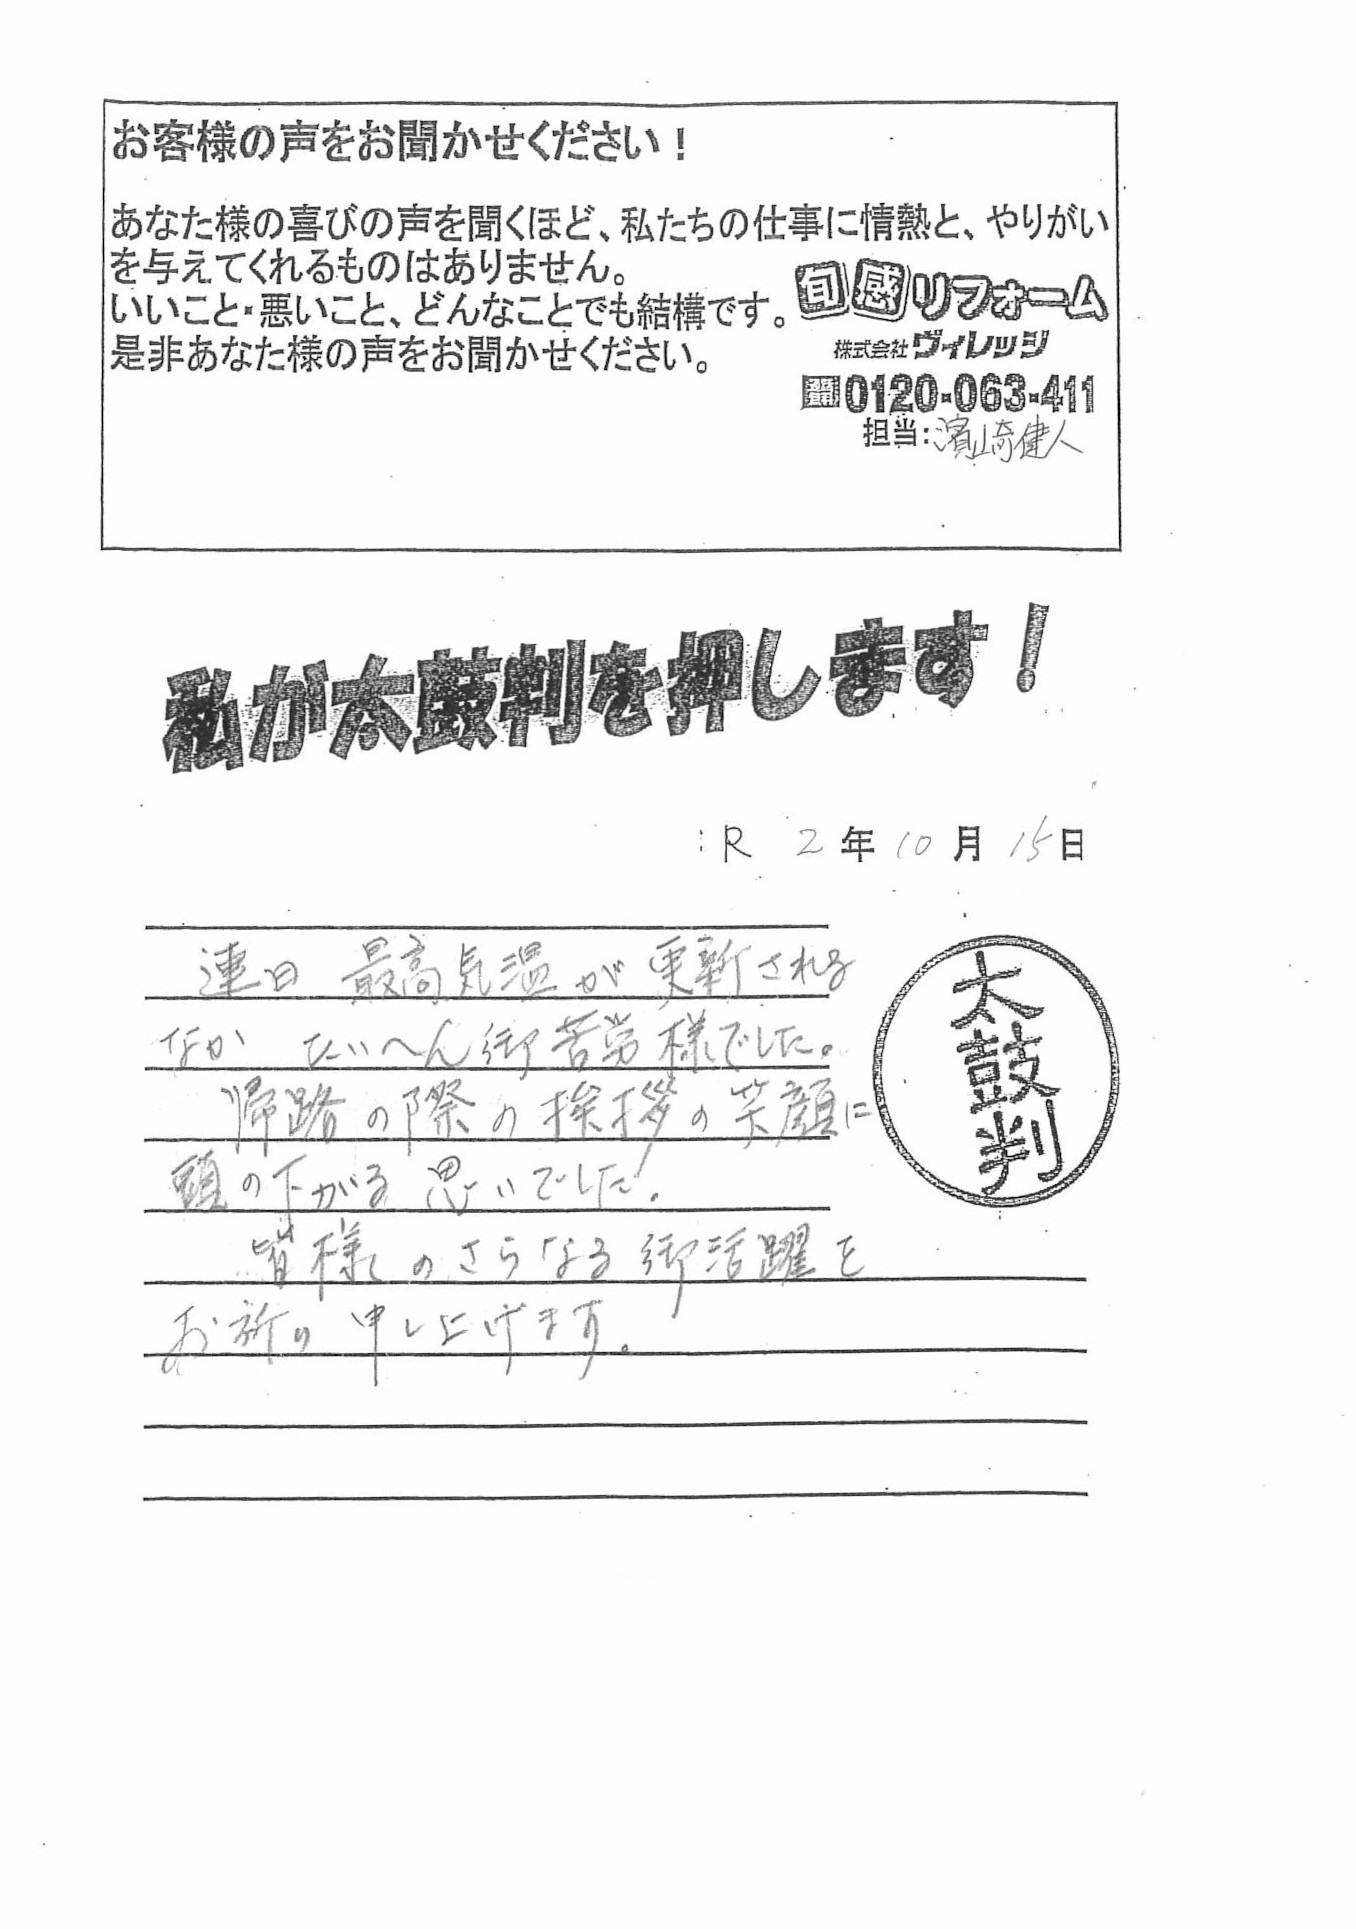 お客様の声をお聞かせください！
あなた様の喜びの声を聞くほど、私たちの仕事に情熱と、やりがい
を与えてくれるものはありません。
いいこと・悪いこと、どんなことでも結構です。
是非あなた様の声をお聞かせください。
旬感リフォーム
株式会社ヴィレッジ
0120-063-411
担当:濱崎健人
私が太鼓判を押します！
:R 2年10月15日
連日 最高気温が更新される
なか たいへん御苦労様でした。
帰路の際の挨拶の笑顔に
頭の下がる思いでした。
皆様のさらなる御活躍を
お祈り申し上げます。
太鼓判